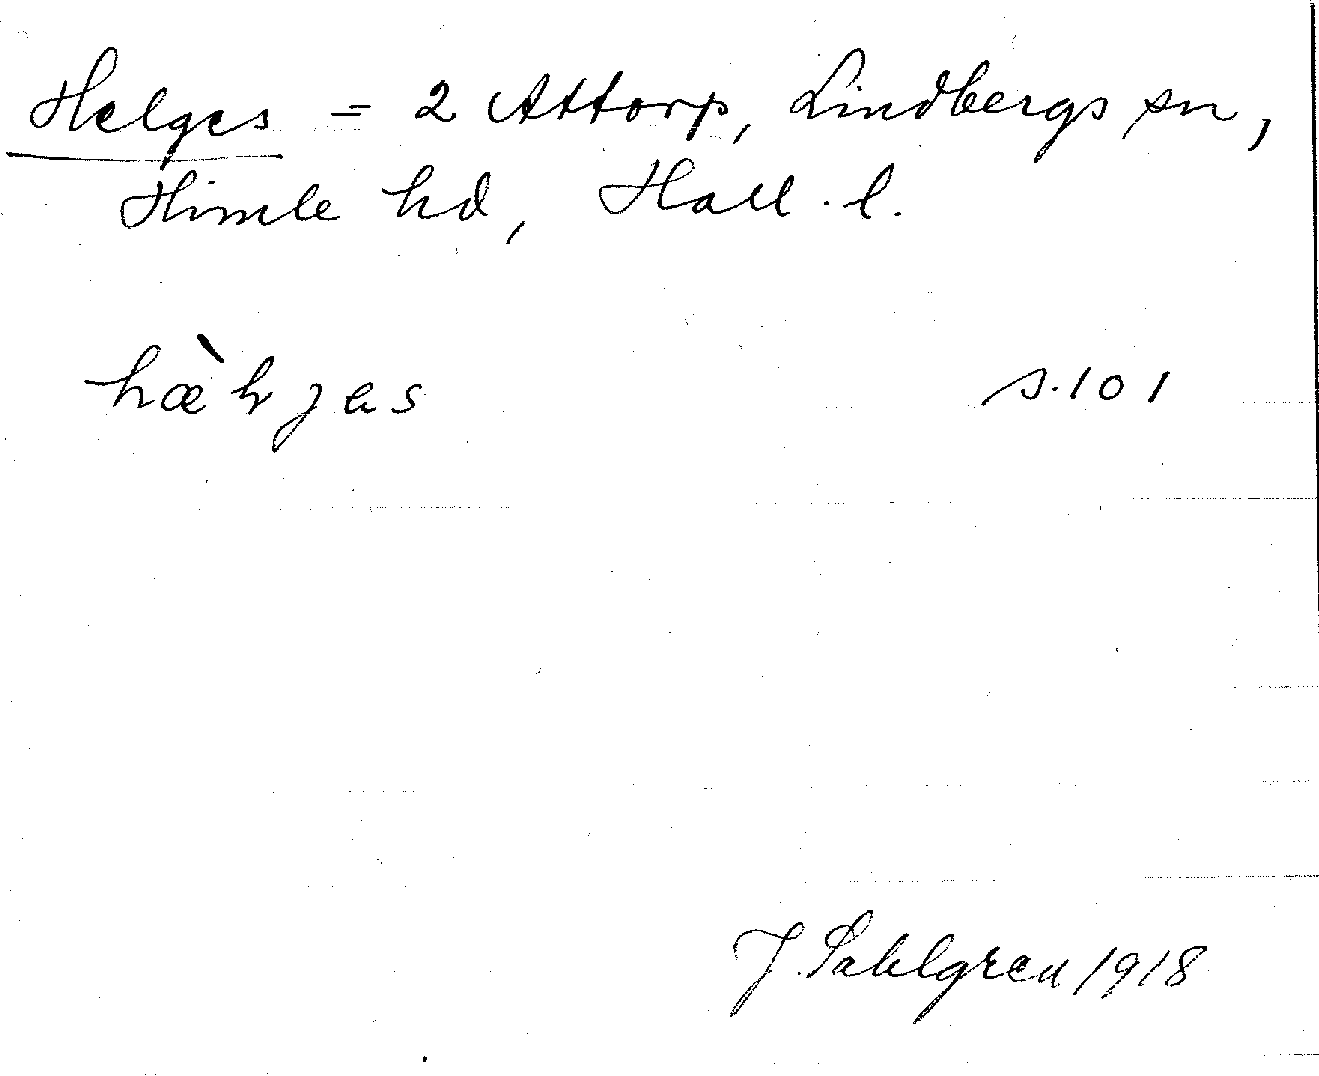 Helges = 2 Attorp, Lindbergs sn,
Himle hd, Hall. l.
s. 101
J. Sahlgren 1918